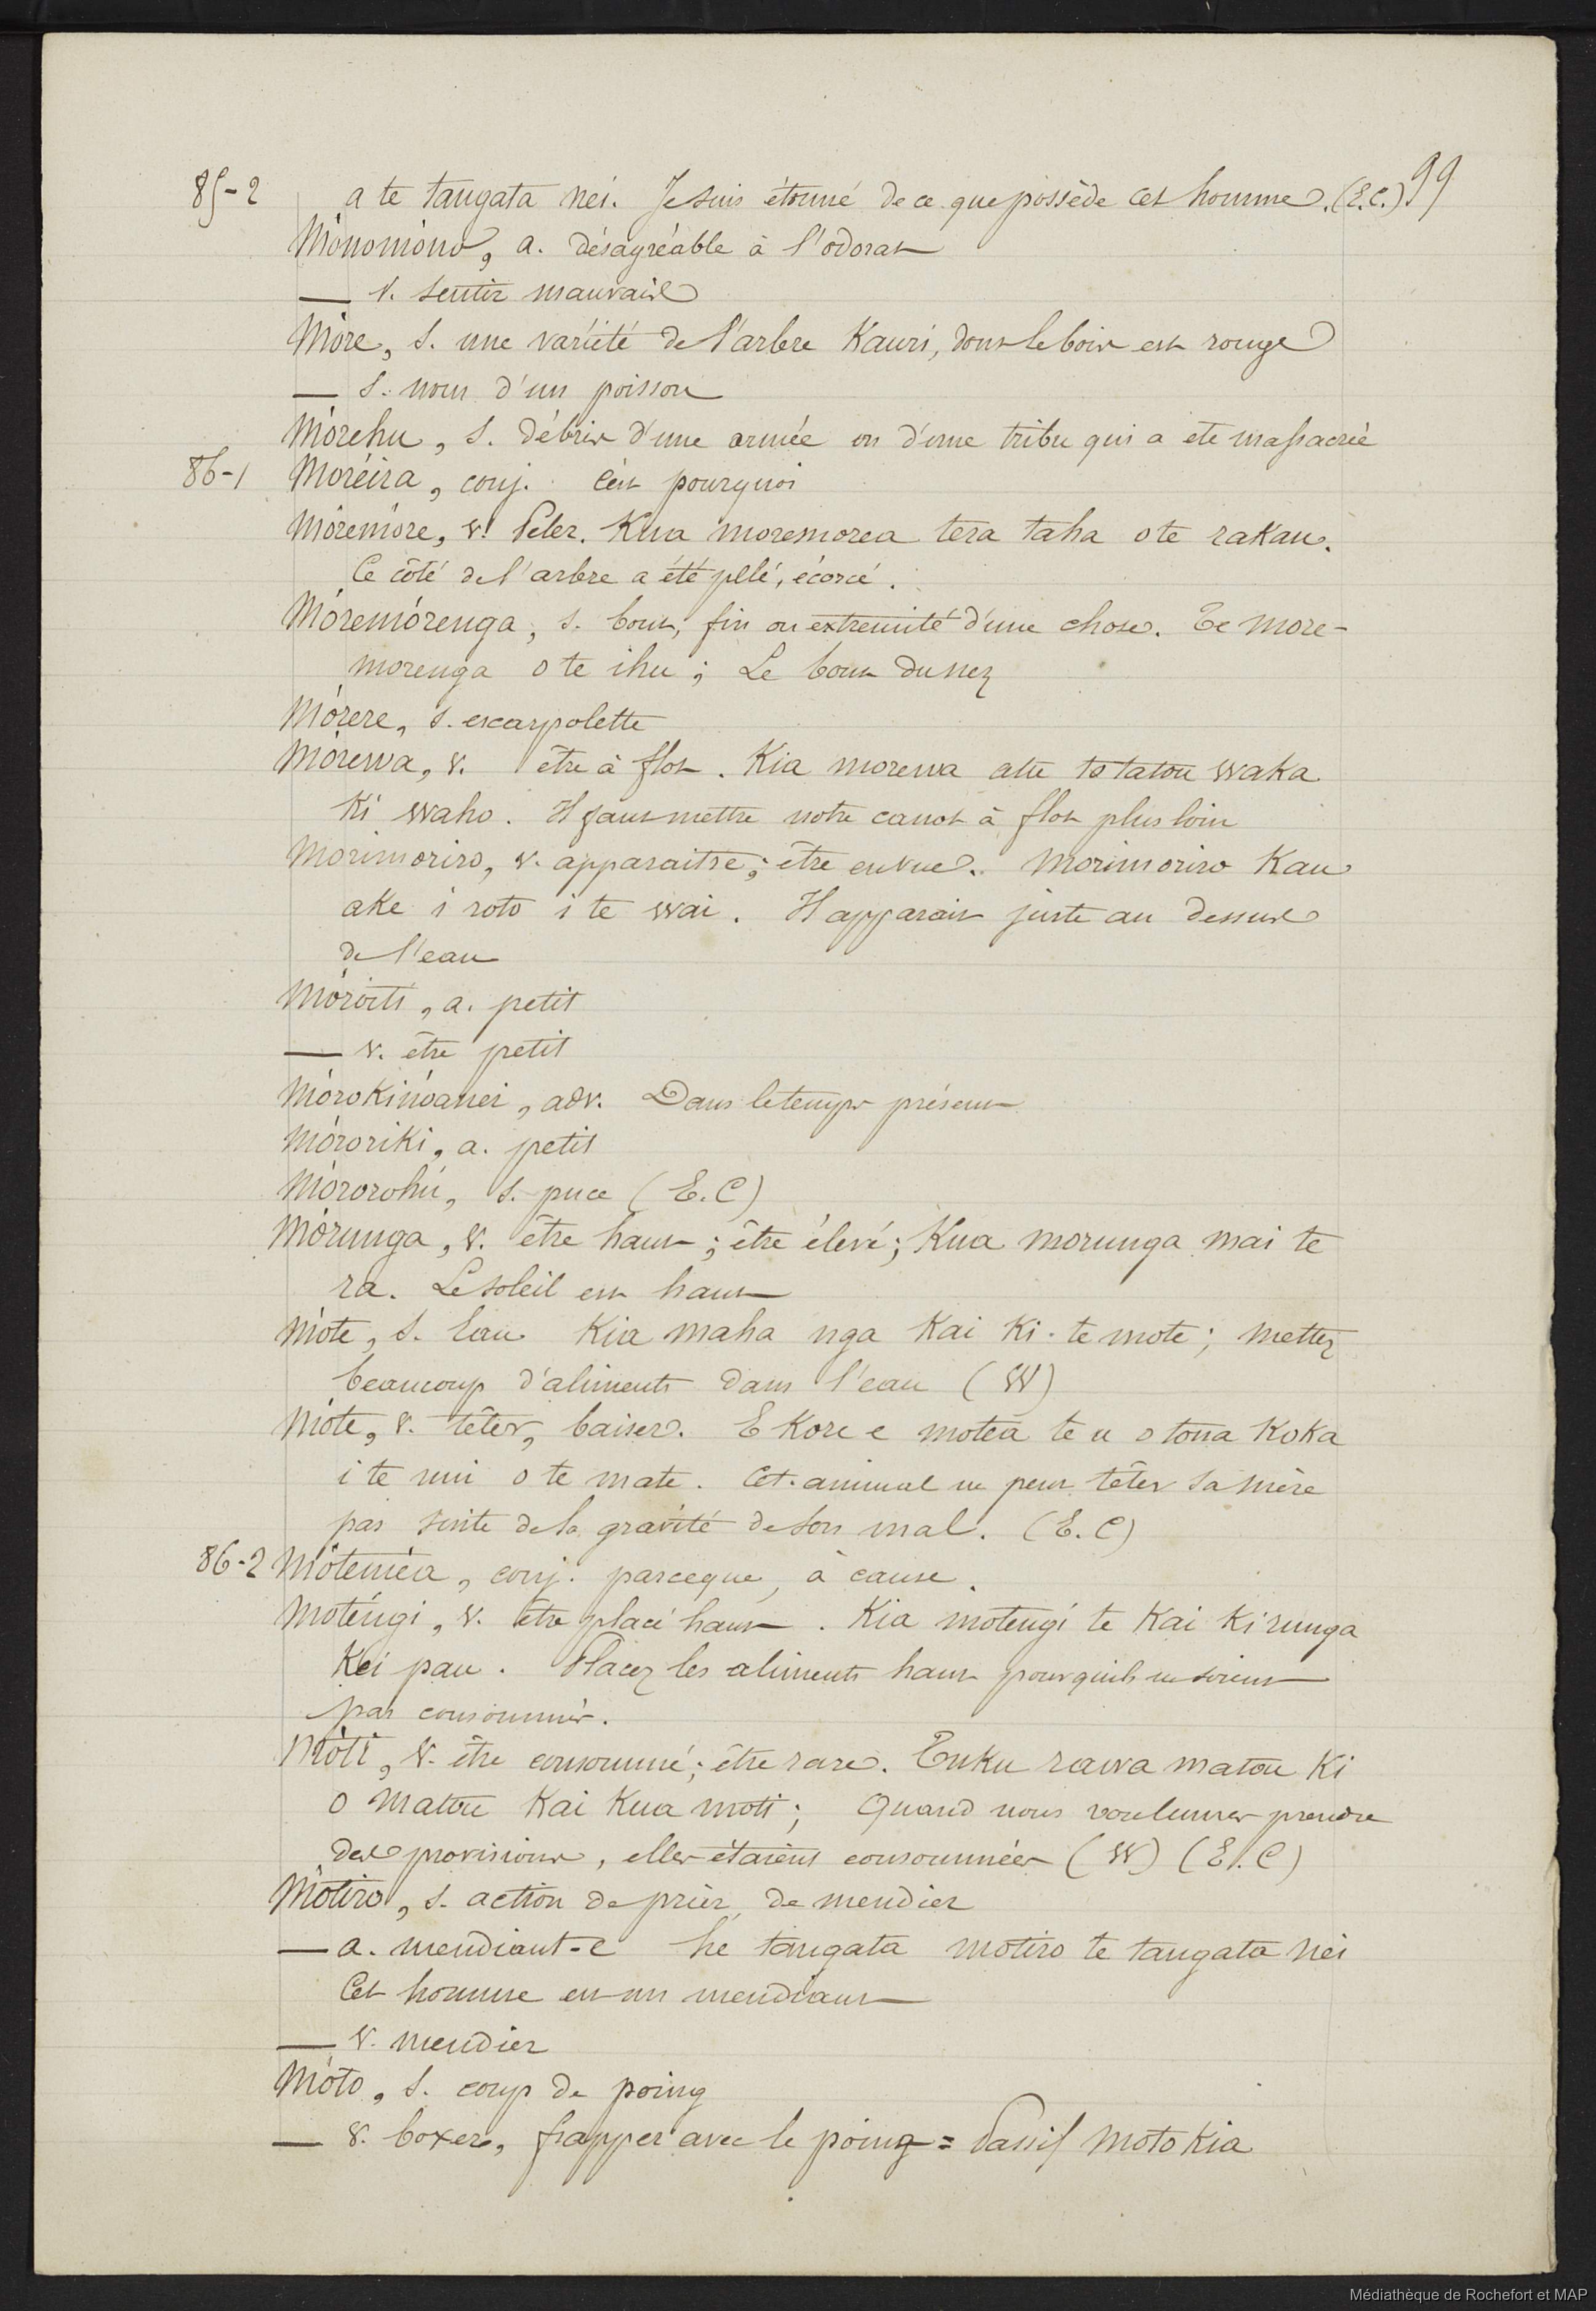 99
85-2 a te tangata nei. Je suis étonné de ce que possède cet homme. (E.C.)
Mónomóno, a. désagréable à l'odorat
— v. sentir mauvais
Móre, s. une variété de l'arbre Kauri, dont le bois est rouge
— s. nom d'un poisson
Mórehu, s. débris d'une armée ou d'une tribu qui a ete massacrée
86-1 Moréira, conj. C'est pourquoi
Móremóre, v. Peler. Kua moremorea tera taha o te rakau.
Ce côté de l'arbre a été pelé, écorcé.
Móremórenga, s. bout, fin ou extremité d'une chose. Te more-
morenga o te ihu ; Le bout du nez
Mórere, s. escarpolette
Mórewa, v. être à flot. Kia morewa atu to tatou waka
ki waho. Il faut mettre notre canot à flot plus loin
Morimoriro, v. apparaitre ; être en vue. Morimoriro kau
ake i roto i te wai. Il apparait juste au dessus
de l'eau
Móroiti, a. petit
— v. être petit
Mórokinóanei, adv. Dans le temps présent
Móroriki, a. petit
Mórorohú, s. puce (E.C)
Mórunga, v. être haut ; être élevé ; Kua morunga mai te
ra. Le soleil est haut
Móte, s. Eau Kia maha nga Kai Ki te mote ; mettez
beaucoup d'aliments dans l'eau (W)
Móte, v. têter, baiser. E Kore e motea te u o tona Koka
i te nui o te mate. Cet animal ne peut têter sa mère
par suite de la gravité de son mal. (E.C)
86-2 Móteméa, conj. parceque, à cause.
Moténgi, v. être placé haut. Kia motengi te Kai Ki runga
Kei pau. Placez les aliments haut pour qu'ils ne soient
pas consommés.
Móti, v. être consommé ; être rare. Tuku rawa matou Ki
o matou Kai Kua moti ; Quand nous voulumes prendre
des provisions, elles étaient consommées (W) (E.C)
Mótiro, s. action de prier, de mendier
— a. mendiant-e he tangata motiro te tangata nei
Cet homme est un mendiant
— v. mendier
Móto, s. coup de poing
— v. boxer, frapper avec le poing = Passif Moto Kia
Médiathèque de Rochefort et MAP